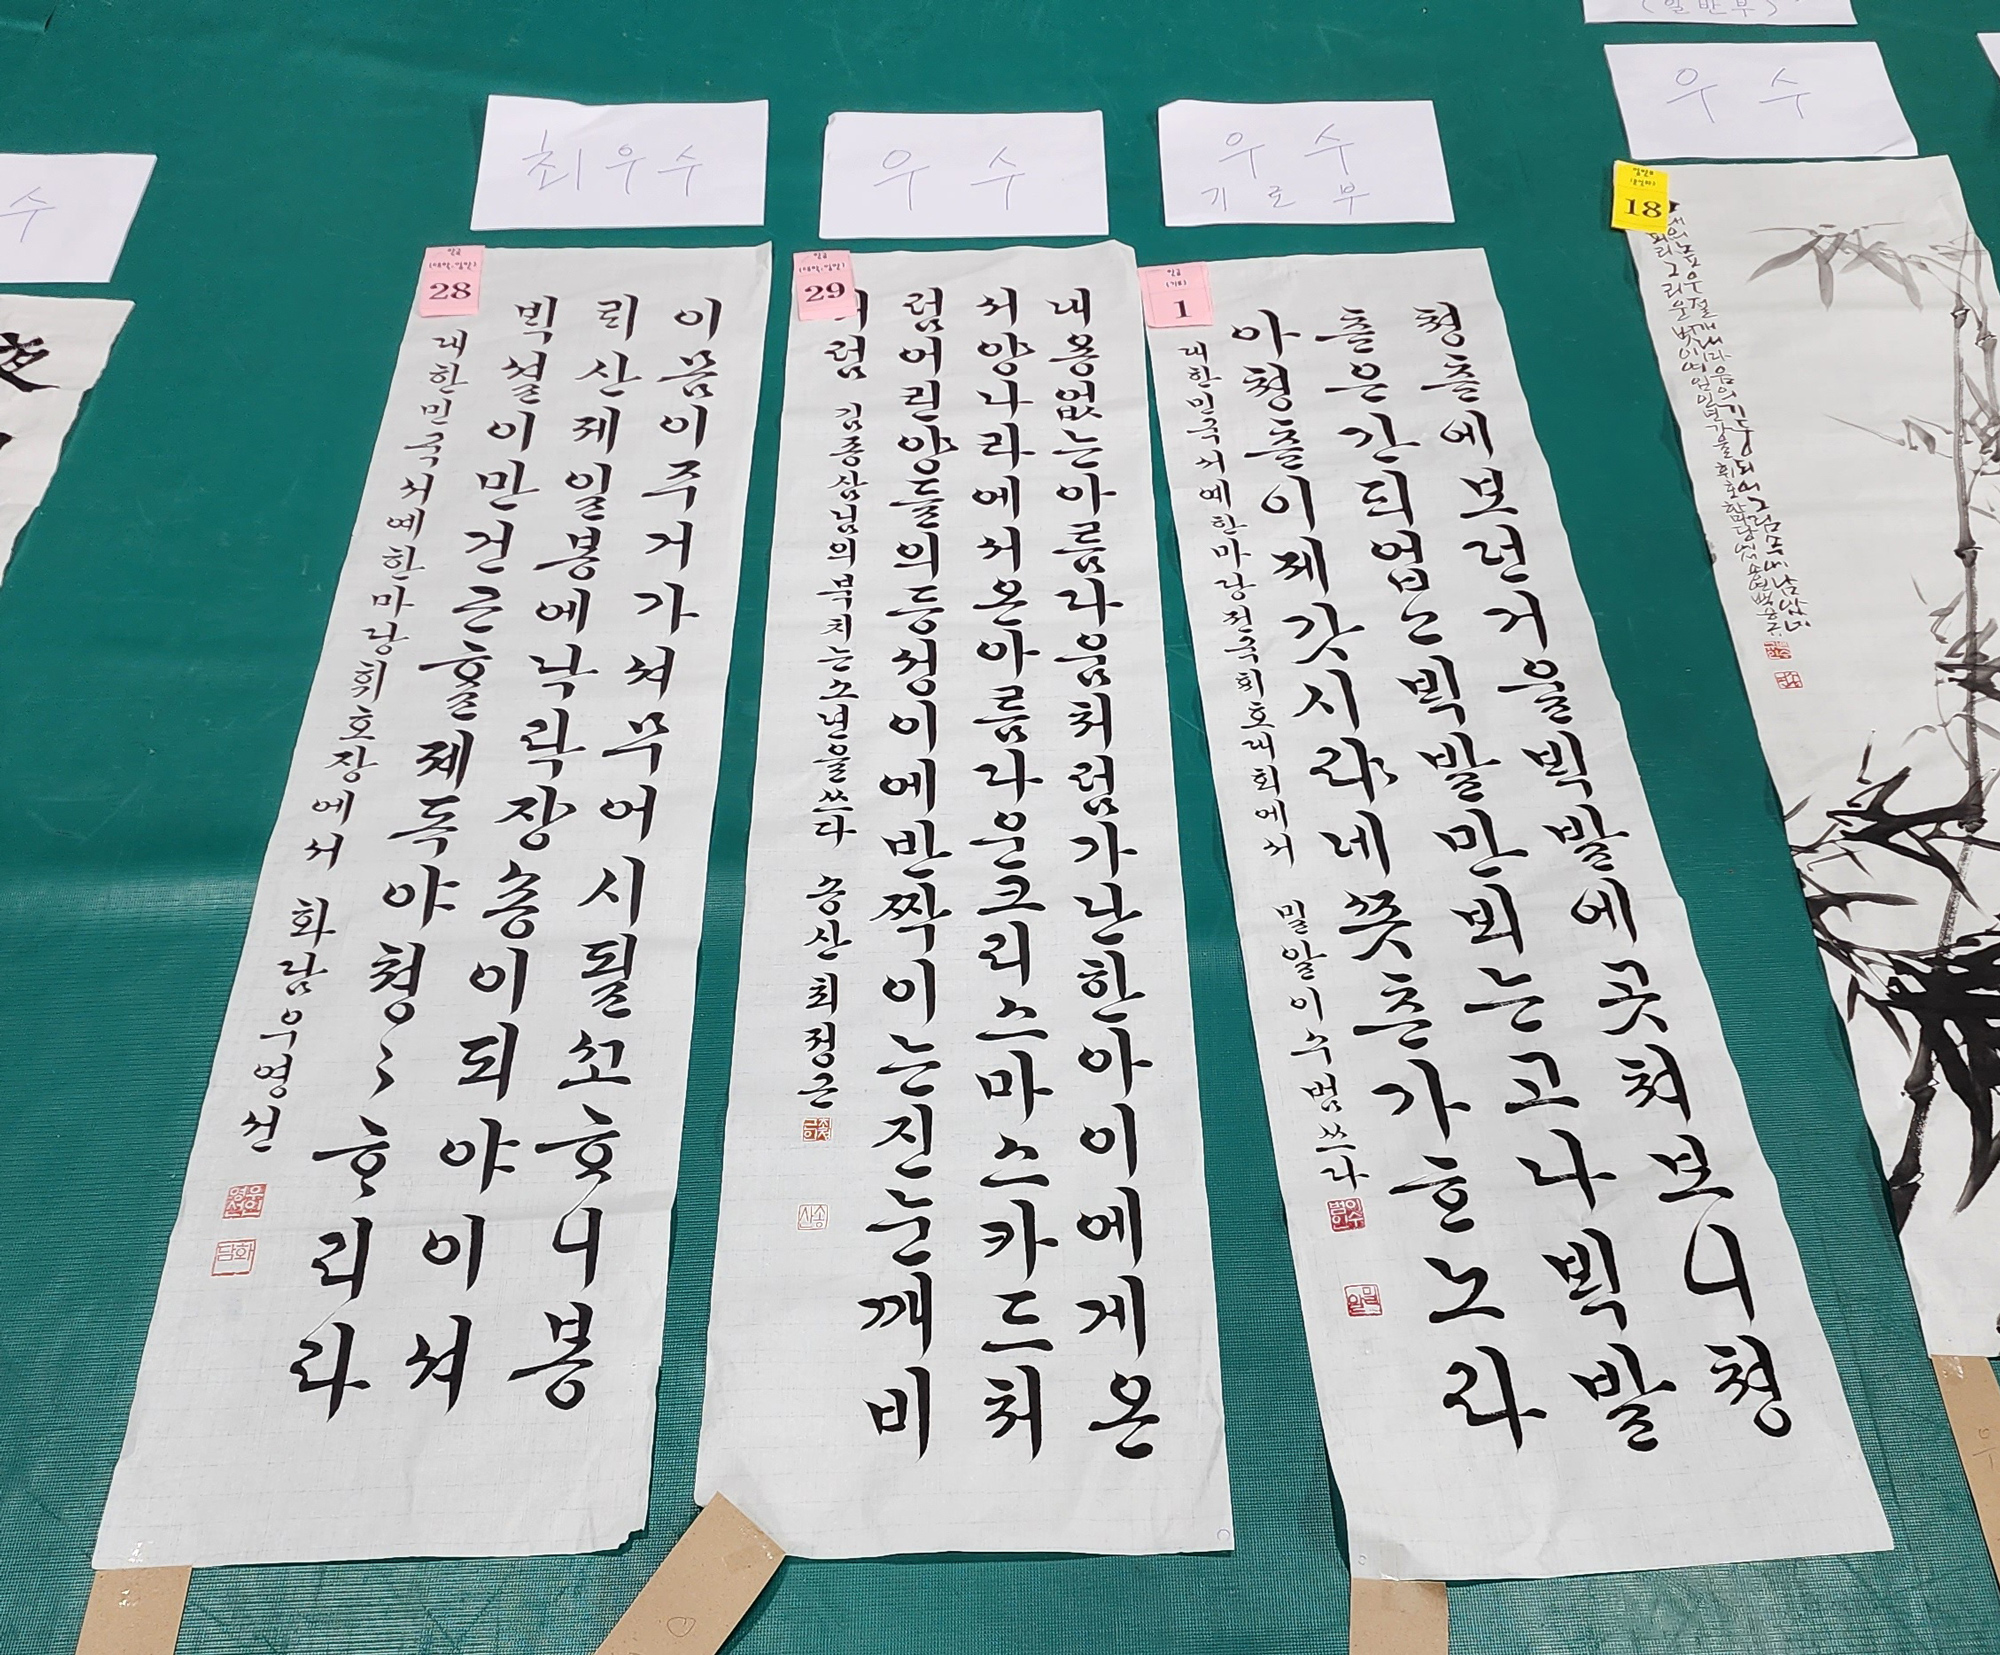 (일반부)
최우수
우수
우수
기로부
우수
수
한글
(대학,일반)
28
이몸이주거가셔무어시될ᄭᅩᄒᆞ니봉
ᄅᆡ산제일봉에낙락장송이되야이셔
ᄇᆡᆨ셜이만건곤ᄒᆞᆯ제독야청〻ᄒᆞ리라
대한민국서예한마당휘호장에서 화담우영선
한글
(대학,일반)
29
내용없는아름다움처럼가난한아이에게온
서양나라에서온아름다운크리스마스카드처
럼어린양들의등성이에반짝이는진눈깨비
처럼 김종삼님의북치는소년을쓰다 송산최정근
한글
(기로)
1
청츈에보던거울ᄇᆡᆨ발에곳쳐보니청
츈은간ᄃᆡ업고ᄇᆡᆨ발만뵈는고나ᄇᆡᆨ발
아청츈이제갓시랴네ᄶᅩᆺ츤가ᄒᆞ노라
대한민국서예한마당전국휘호대회에서 밀알이수범쓰다
18